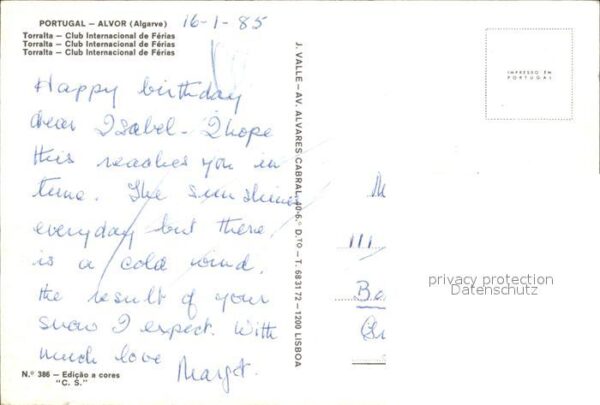 PORTUGAL – ALVOR (Algarve)
Torralta – Club Internacional de Férias
Torralta – Club Internacional de Férias
Torralta – Club Internacional de Férias
16-1-85
Happy birthday
dear Isabel. I hope
this reaches you in
time. The sun shines
everyday but there
is a cold wind,
the result of your
snow I expect. With
much love Margot.
N.º 386 – Edição a cores
"C. S."
J. VALLE – AV. ALVARES CABRAL, 40-6.º D.TO – T. 683172 – 1200 LISBOA
IMPRESSO EM
PORTUGAL
M
111
Ba
privacy protection
Datenschutz